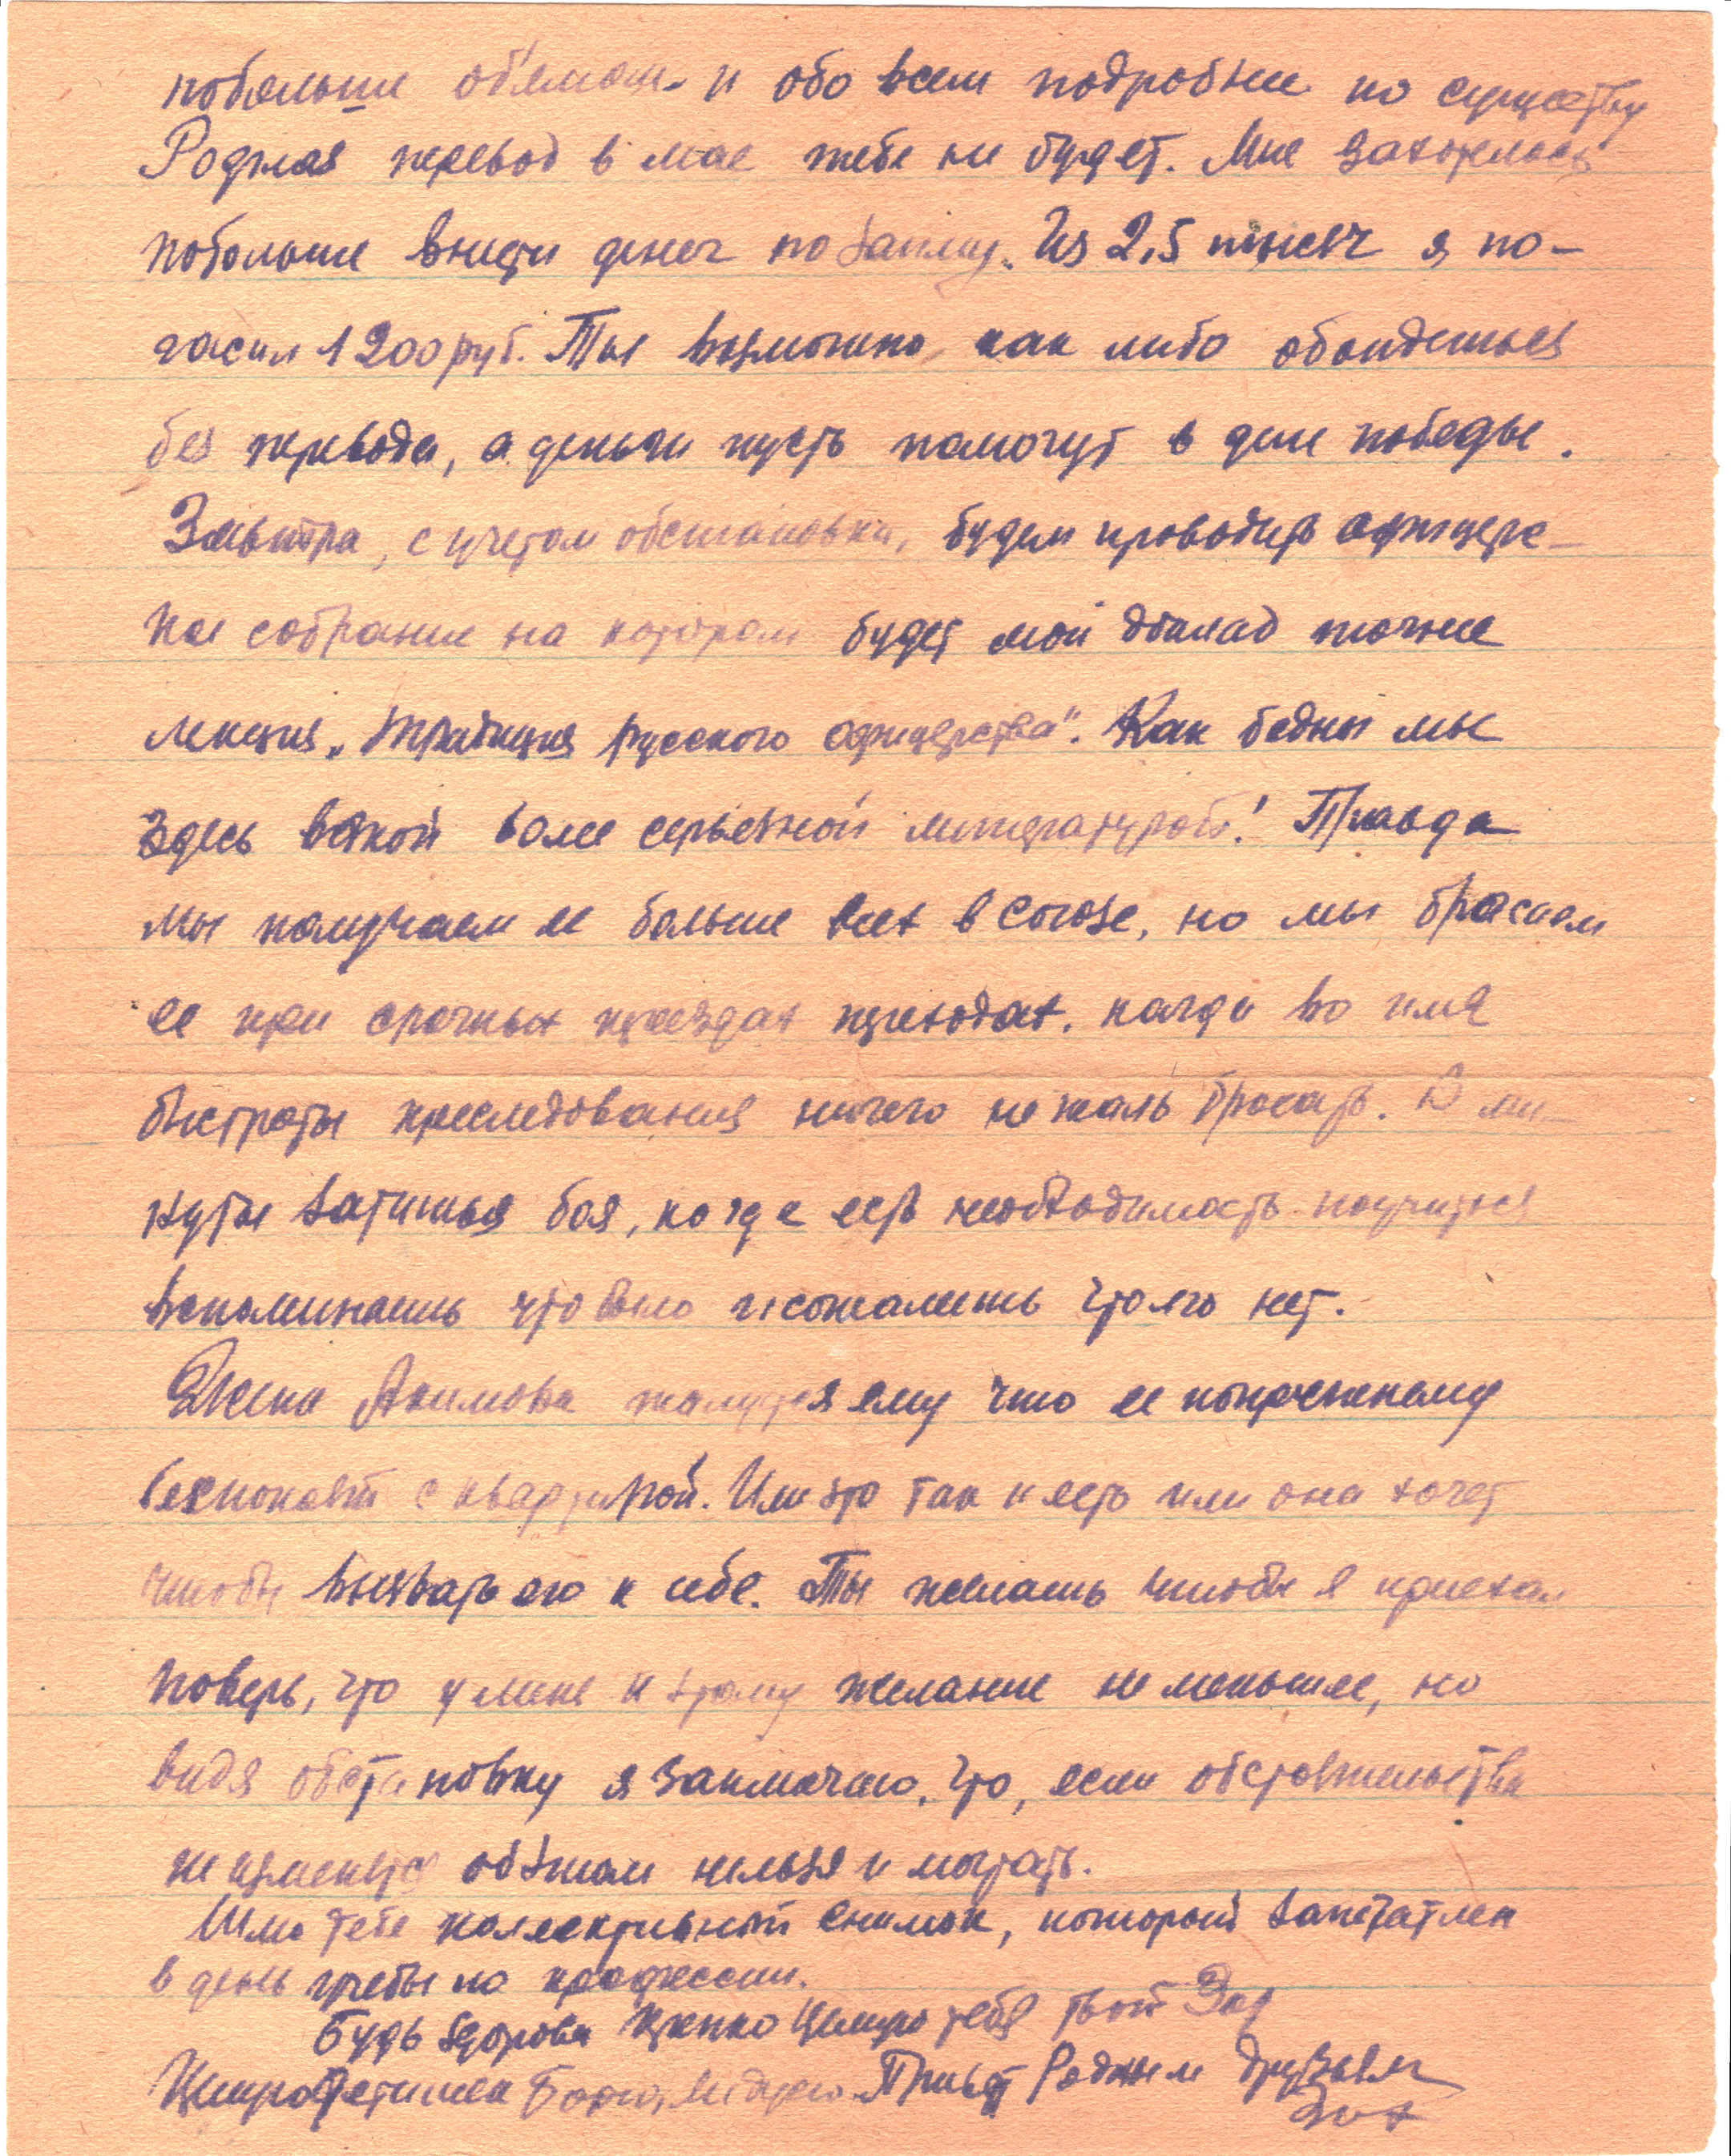 побольше об'емом и обо всем подробнее по существу
Родная перевод в мае тебе не будет. Мне захотелось
побольше внести денег по займу. Из 2,5 тысяч я по-
гасил 1200 руб. Ты возможно как либо обойдешься
без перевода, а деньги пусть помогут в деле победы.
Завтра, с учетом обстановки, будем проводить офицерс-
кое собрание на котором будет мой доклад точнее
лекция „Традиция русского офицерства". Как бедны мы
здесь всякой более серьезной литературой! Правда
мы получаем ее больше всех в Союзе, но мы бросаем
ее при срочных переездах переходах, когда во имя
быстроты преследования ничего не жаль бросать. В ми-
нуты затишья боя, когда есть необходимость поучиться
вспоминаешь что было и сожалеешь что его нет.
Жена Акимова жалуется ему что ее по прежнему
беспокоят с квартирой. Или это так и есть или она хочет
чтобы вызвать его к себе. Ты желаешь чтобы я приехал
поверь, что у меня к этому желание не меньшее, но
видя обстановку я заключаю, что, если обстоятельства
не изменятся об этом нельзя и мечтать.
Шлю тебе коллективный снимок, который запечатлен
в день учебы по профессии.
Будь здорова Крепко Целую тебя твой
Целую Детишек Борю, Лидусю. Привет Родным Друзьям